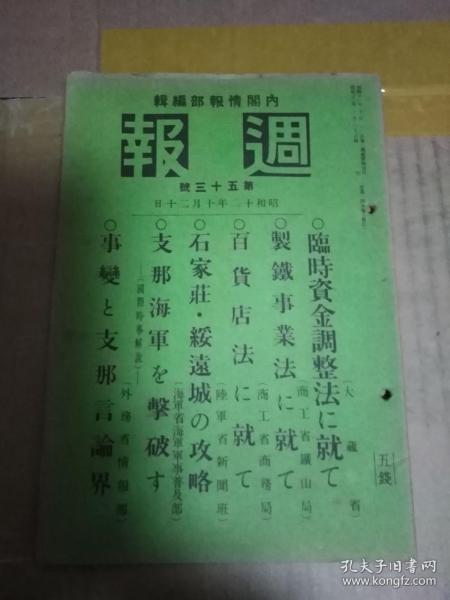 內閣情報部編輯
週報
第五十三號
昭和十二年十月二十日
○臨時資金調整法に就て（大藏省）
○製鐵事業法に就て（商工省鑛山局）
○百貨店法に就て（商工省商務局）
○石家莊・綏遠城の攻略（陸軍省新聞班）
○支那海軍を擊破す（海軍省海軍軍事普及部）
―（國際時事解說）―
○事變と支那言論界（外務省情報部）
五錢
孔夫子旧书网
www.kongfz.com